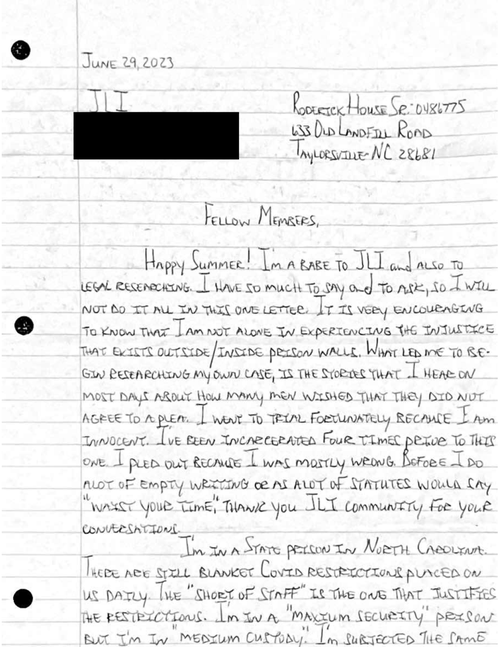 June 29, 2023
JLI
Roderick House Sr. 0486775
633 Old Landfill Road
Taylorsville NC 28681
Fellow Members,
Happy Summer! I'm a babe to JLI and also to
legal researching. I have so much to say and to ask, so I will
not do it all in this one letter. It is very encouraging
to know that I am not alone in experiencing the injustice
that exists outside/inside prison walls. What led me to be-
gin researching my own case, is the stories that I hear on
most days about how many men wished that they did not
agree to a plea. I went to trial fortunately because I am
innocent. I've been incarcerated four times prior to this
one. I pled out because I was mostly wrong. Before I do
alot of empty writing or as alot of statutes would say
"waist your time," thank you JLI community for your
conversations.
I'm in a State prison in North Carolina.
There are still blanket Covid restrictions placed on
us daily. The "short of staff" is the one that justifies
the restrictions. I'm in a "maxium security" prison
but I'm in "medium custody". I'm subjected the same